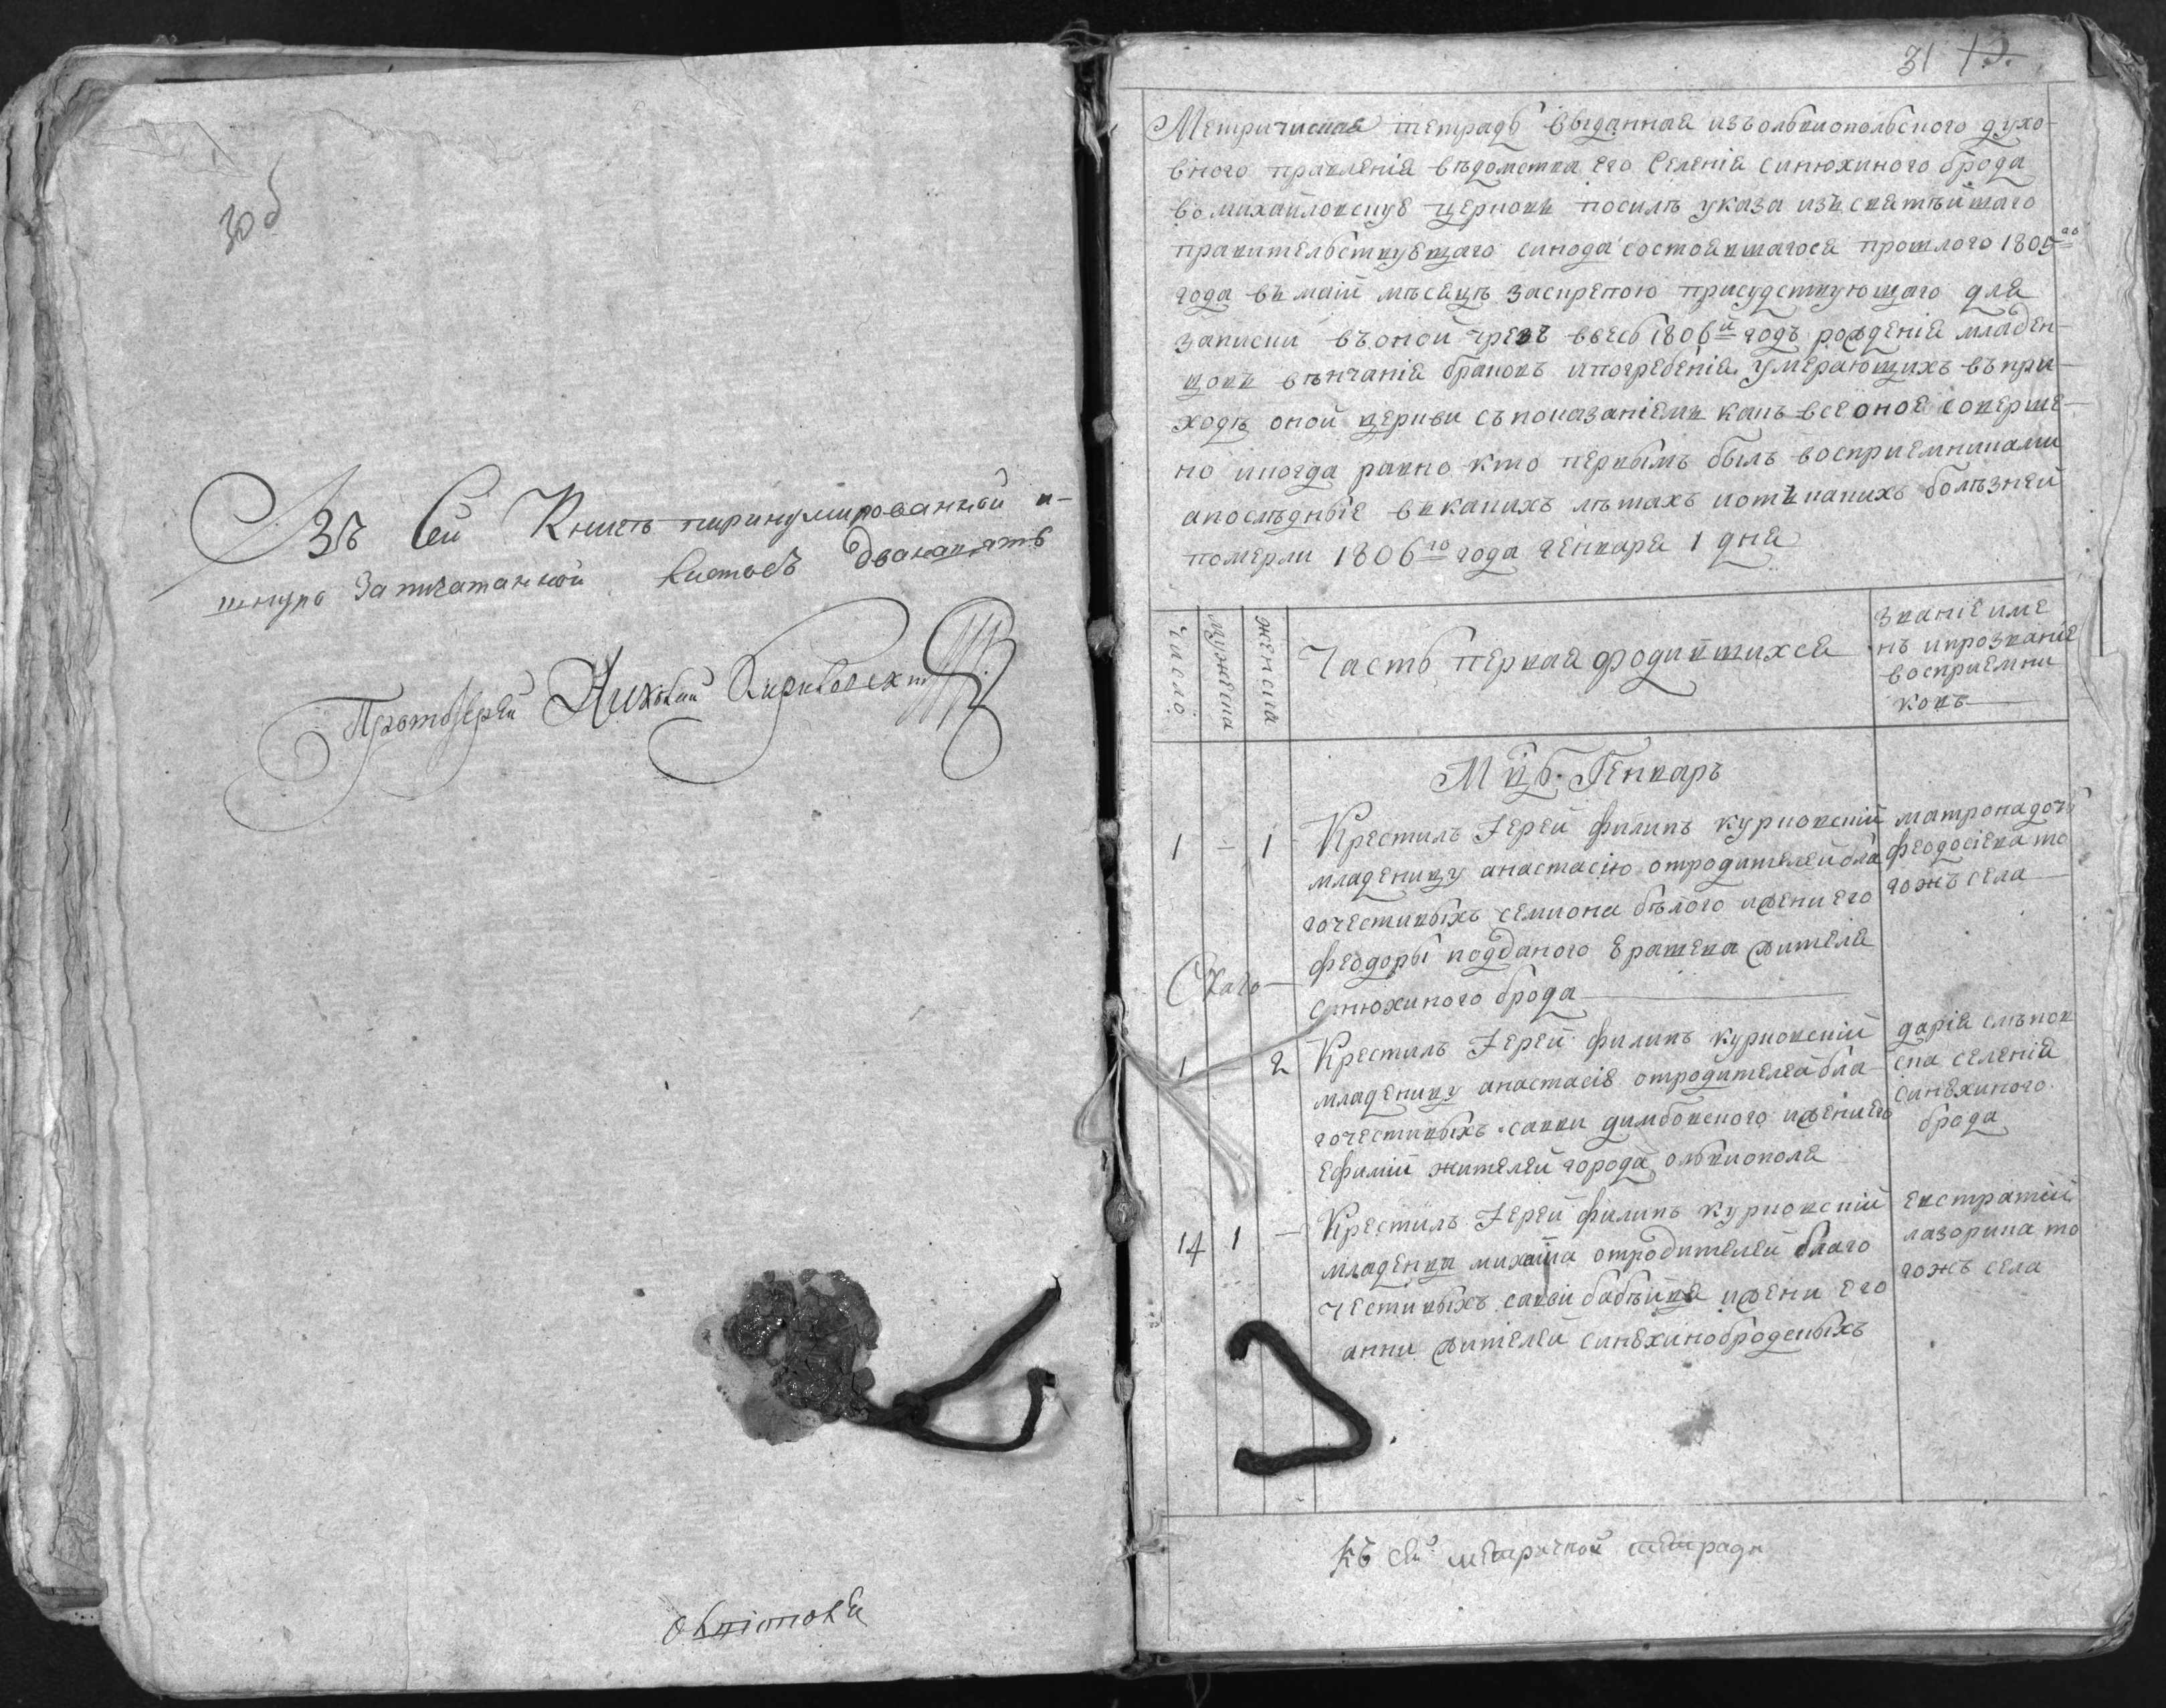 30б
Въ Сей Книге пирнумированной и
шнуро запичатанной листовъ дванацять
Протоіерей
31 13.
Метрическая тетрадь выданная изъ ольвиопольского духо-
вного правленія вѣдомства его Селенія синюхиного брода
во михайловскую церковь посилѣ указа изъ святѣйшаго
правительствующаго синода состоявшагося прошлого 1805го
года въ маіи мѣсяцѣ заскрепою присудствующаго для
записки въ оной чрезъ весь 1806й годъ рожденія младен-
цовъ вѣнчанія браковъ и погребенія умерающихъ въ при-
ходѣ оной церкви съ показаніемъ какъ все оное соверше-
но и когда равно кто первымъ былъ восприемниками
а послѣдные въ какихъ лѣтахъ и отъ какихъ болѣзней
померли 1806го года генваря 1 дня
число
мужеска
женска
Часть первая родившихся
Званіе име
нъ и прозваніе
восприемни
ковъ
Мцъ Генварь
1 - 1
Крестилъ Іерей филипъ курковскій
младеницу анастасію отродителей бла
гочестивыхъ семиона бѣлого и жени его
феодоры подданого жителя
синюхиного брода
матрона дочь
феодосіева то
гожъ села
1 2
Крестилъ Іерей филипъ курковскій
младеницу анастасію отродителей бла
гочестивыхъ саввы димбовского и жени его
ефиміи жителей города ольвиополя
дарія слѣпов
ска селенія
синюхиного
брода
14 1 -
Крестилъ Іерей филипъ курковскій
младенца михаила отродителей благо
честивыхъ саввы бабѣйка и жени его
анни жителей синюхинобродскыхъ
евстратій
лазорика то
гожъ села
Къ сей метричной тетради